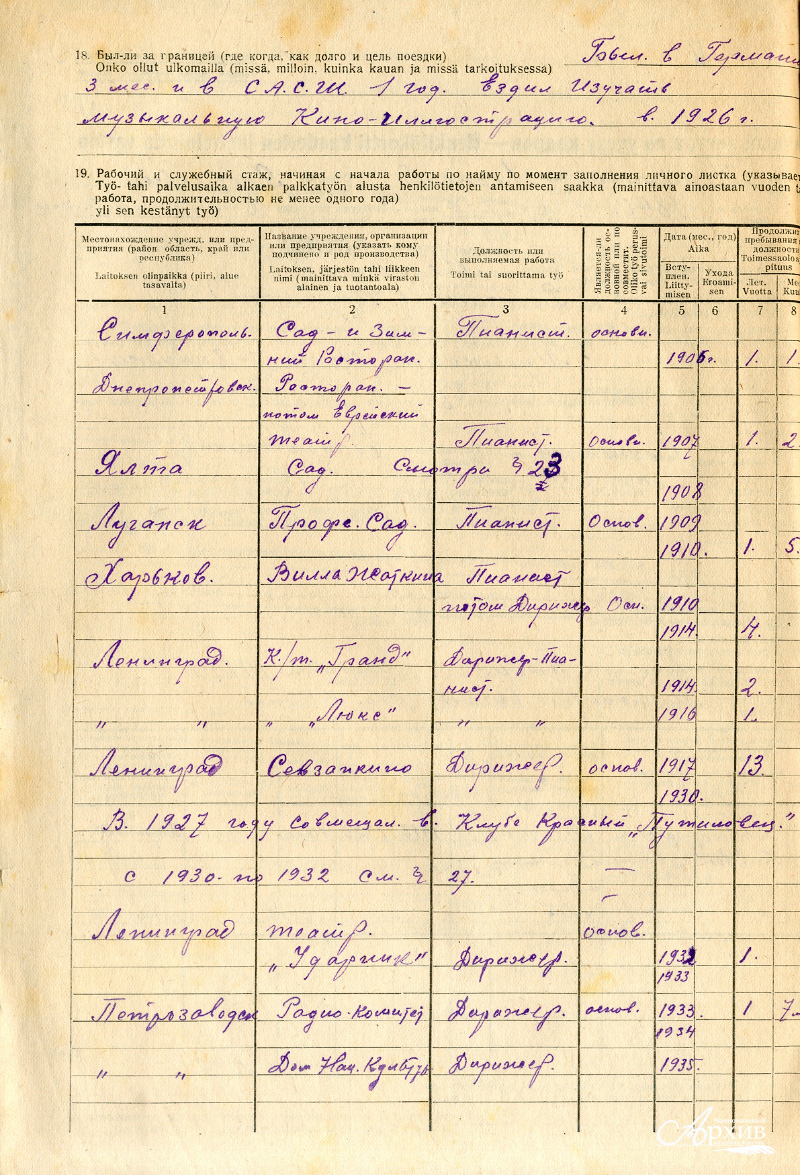 18. Был-ли за границей (где когда, как долго и цель поездки) Был. в Германи
Onko ollut ulkomailla (missä, milloin, kuinka kauan ja missä tarkoituksessa)
3 мес. и в С.А.С.Ш. 1 год. Ездил изучать
музыкальную Кино-иллюстрацию. в. 1926 г.
19. Рабочий и служебный стаж, начиная с начала работы по найму по момент заполнения личного листка (указывае
Työ- tahi palvelusaika alkaen palkkatyön alusta henkilötietojen antamiseen saakka (mainittava ainoastaan vuoden
работа, продолжительностью не менее одного года)
yli sen kestänyt työ)
Местонахождение учрежд. или предприятия (район область, край или республика)
Laitoksen olinpaikka (piiri, alue tasavalta)
Название учреждения, организации или предприятия (указать кому подчинено и род производства)
Laitoksen, järjestön tahi liikkeen nimi (mainittava minkä viraston alainen ja tuotantoala)
Должность или выполняемая работа
Toimi tai suorittama työ
Является-ли должность основной или по совместит.
Oliko työ perus- vai sivutoimi
Дата (мес., год)
Aika
Вступлен. Liittymisen
Ухода Eroamisen
Продолжи пребывания должност
Toimessaoloa pituus
Лет. Vuotta
Ме Kuu
1 2 3 4 5 6 7 8
Симферополь. Сад - и Зим- Пианист. основн.
ний Ресторан. 1906г. 1. 1.
Днепропетровск. Ресторан. —
потом Еврейский
театр. Пианист. основн. 1907 1. 2
Ялта Сад. Смотри § 23
1908
Луганск Профс. Сад. Пианист. Основ. 1909
1910. 1. 5.
Харьков. Вилла Жаткина Пианист
потом Дирижер Осн. 1910
1914. 4.
Ленинград. К./т. „Гранд" Дирижер-Пиа-
нист. 1914 2.
„ „ „ „Люкс" „ „ 1916 1.
Ленинград Севзапкино Дирижер. основ. 1917 13.
1930.
В. 1927 году совмещал. в. Клубе Красный „Путиловец."
с 1930 по 1932 см. § 27. —
Ленинград театр. основ.
„Ударник" Дирижер. 1932 1.
1933
Петрозаводск Радио-Комитет Дирижер. основ. 1933 1 7
1934
„ „ Дом Нац. Культуры Дирижер. 1935
Архив